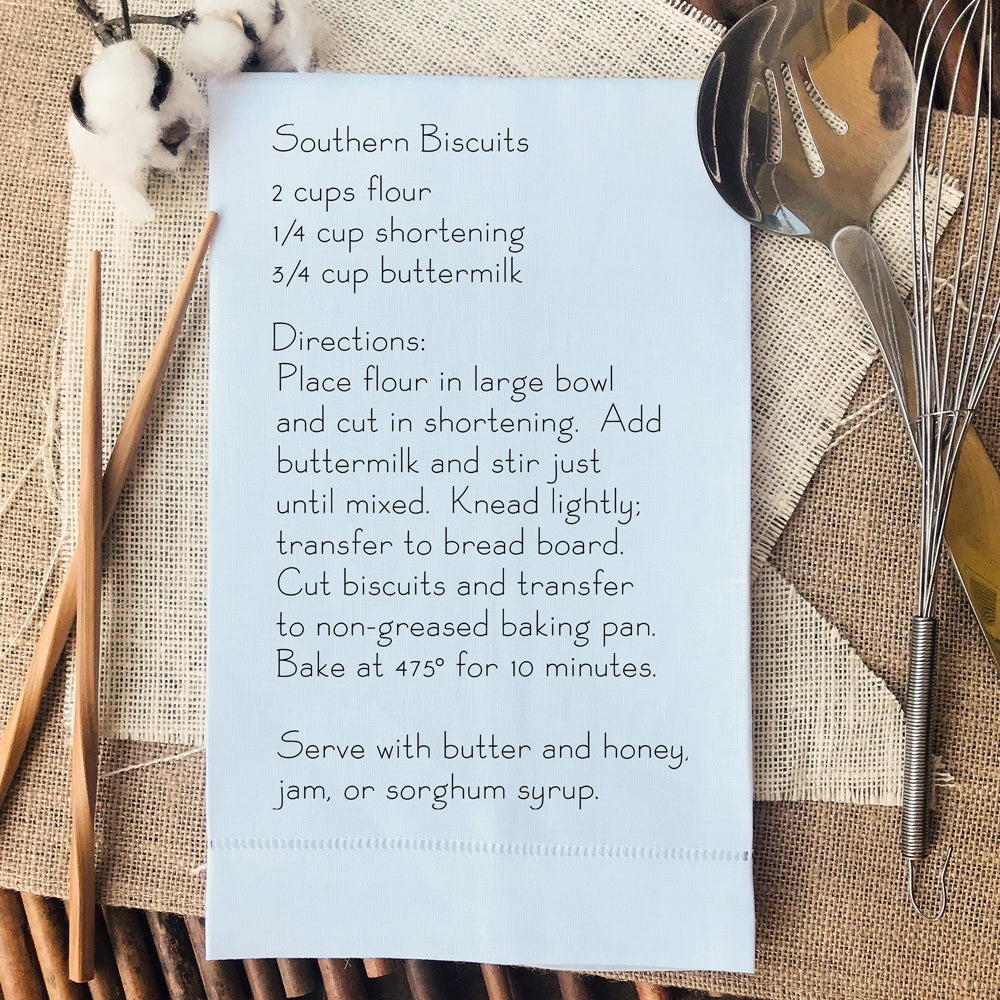 Southern Biscuits
2 cups flour
1/4 cup shortening
3/4 cup buttermilk
Directions:
Place flour in large bowl
and cut in shortening. Add
buttermilk and stir just
until mixed. Knead lightly;
transfer to bread board.
Cut biscuits and transfer
to non-greased baking pan.
Bake at 475° for 10 minutes.
Serve with butter and honey,
jam, or sorghum syrup.